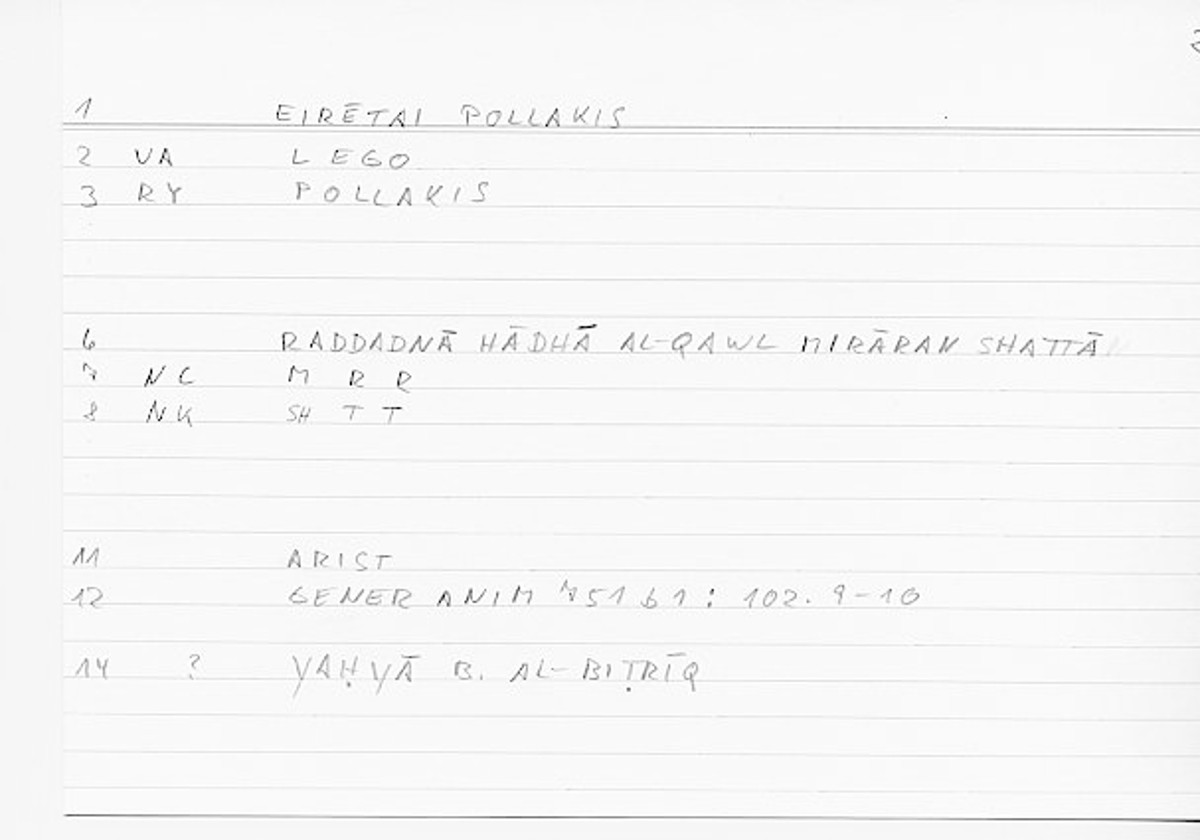 1 EIRĒTAI POLLAKIS
2 VA L EGO
3 RY POLLAKIS
6 RADDADNĀ HĀDHĀ AL-QAWL MIRĀRAN SHATTĀ
7 NC M R R
8 NK SH T T
11 ARIST
12 GENER ANIM 751 b 1 : 102. 9-10
14 ? YAḤYĀ B. AL-BIṬRĪQ